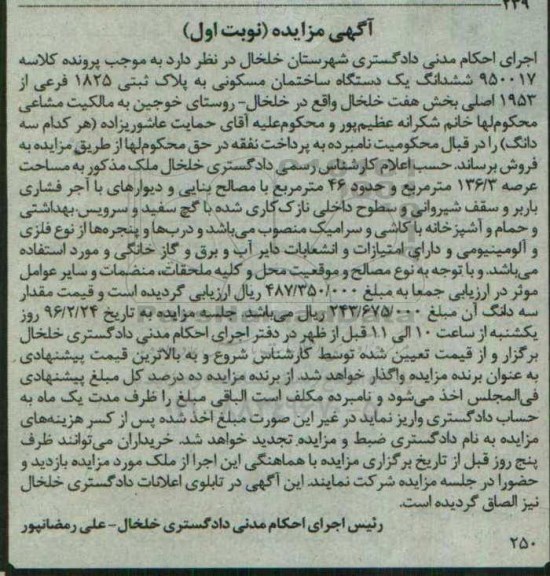 ۲۴۹
آگهی مزایده (نوبت اول)
اجرای احکام مدنی دادگستری شهرستان خلخال در نظر دارد به موجب پرونده کلاسه
۹۵۰۰۱۷ ششدانگ یک دستگاه ساختمان مسکونی به پلاک ثبتی ۱۸۲۵ فرعی از
۱۹۵۳ اصلی بخش هفت خلخال واقع در خلخال- روستای خوجین به مالکیت مشاعی
محکوم‌لها خانم شکرانه عظیم‌پور و محکوم‌علیه آقای حمایت عاشوریزاده (هر کدام سه
دانگ) را در قبال محکومیت نامبرده به پرداخت نفقه در حق محکوم‌لها از طریق مزایده به
فروش برساند. حسب اعلام کارشناس رسمی دادگستری خلخال ملک مذکور به مساحت
عرصه ۱۳۶/۳ مترمربع و حدود ۴۶ مترمربع با مصالح بنایی و دیوارهای با آجر فشاری
باربر و سقف شیروانی و سطوح داخلی نازک‌کاری شده با گچ سفید و سرویس بهداشتی
و حمام و آشپزخانه با کاشی و سرامیک منصوب می‌باشد و درب‌ها و پنجره‌ها از نوع فلزی
و آلومینیومی و دارای امتیازات و انشعابات دایر آب و برق و گاز خانگی و مورد استفاده
می‌باشد. و با توجه به نوع مصالح و موقعیت محل و کلیه ملحقات، منضمات و سایر عوامل
موثر در ارزیابی جمعا به مبلغ ۴۸۷/۳۵۰/۰۰۰ ریال ارزیابی گردیده است و قیمت مقدار
سه دانگ آن مبلغ ۲۴۳/۶۷۵/۰۰۰ ریال می‌باشد. جلسه مزایده به تاریخ ۹۶/۲/۲۴ روز
یکشنبه از ساعت ۱۰ الی ۱۱ قبل از ظهر در دفتر اجرای احکام مدنی دادگستری خلخال
برگزار و از قیمت تعیین شده توسط کارشناس شروع و به بالاترین قیمت پیشنهادی
به عنوان برنده مزایده واگذار خواهد شد. از برنده مزایده ده درصد کل مبلغ پیشنهادی
فی‌المجلس اخذ می‌شود و نامبرده مکلف است الباقی مبلغ را ظرف مدت یک ماه به
حساب دادگستری واریز نماید در غیر این صورت مبلغ اخذ شده پس از کسر هزینه‌های
مزایده به نام دادگستری ضبط و مزایده تجدید خواهد شد. خریداران می‌توانند ظرف
پنج روز قبل از تاریخ برگزاری مزایده با هماهنگی این اجرا از ملک مورد مزایده بازدید و
حضورا در جلسه مزایده شرکت نمایند. این آگهی در تابلوی اعلانات دادگستری خلخال
نیز الصاق گردیده است.
رئیس اجرای احکام مدنی دادگستری خلخال- علی رمضانپور
۲۵۰